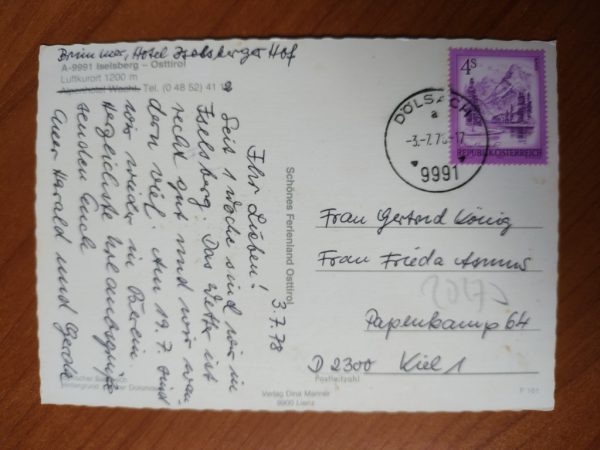 Brimmer, Hotel Iselsberger Hof
A-9991 Iselsberg – Osttirol
Luftkurort 1200 m
Tel. (0 48 52) 41
3.7.78
Ihr Lieben!
Seit 1 Woche sind wir in
Iselsberg. Das Wetter ist
recht gut und wir wan-
dern viel. Am 19.7. sind
wir wieder in Berlin.
Herzlichste Urlaubsgrüße
senden Euch
Euer Harald und Gerda
Schönes Ferienland Osttirol
Verlag Dina Mariner
9900 Lienz
4S
REPUBLIK ÖSTERREICH
DÖLSACH
a
-3.-7.78-17
9991
Frau Gertrud König
Frau Frieda
Papenkamp 64
D 2300 Kiel 1
Postleitzahl
P 161